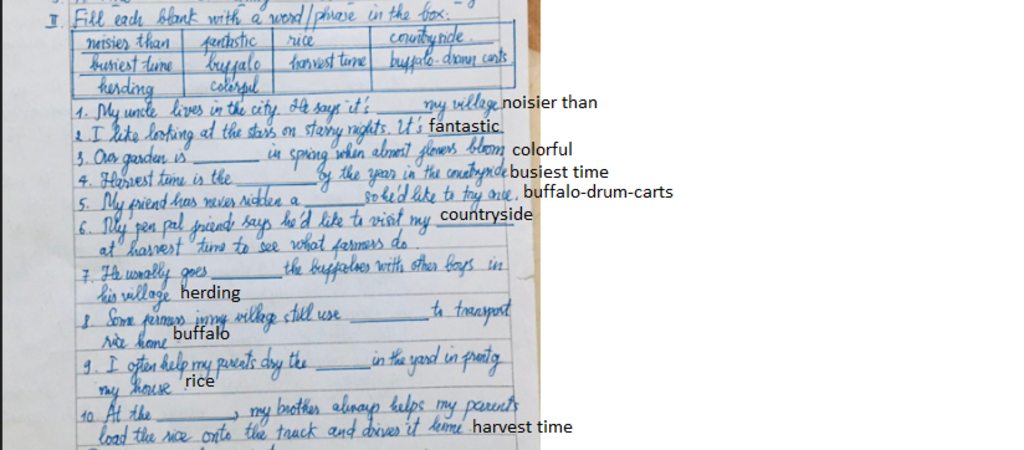 II. Fill each blank with a word/phrase in the box.
noisies than fantistic rice countryside
busiest time buffalo harvest time buffalo-drawn carts
herding colorful
1. My uncle lives in the city. He says it's ______ my village noisier than
2. I like looking at the stars on starry nights. It's fantastic
3. Our garden is ______ in spring when almost flowers bloom colorful
4. Harvest time is the ______ of the year in the countryside busiest time
5. My friend has never ridden a ______ so he'd like to try one. buffalo-drum-carts
6. My pen pal friend says he'd like to visit my countryside
at harvest time to see what farmers do.
7. He usually goes ______ the buffaloes with other boys in
his village herding
8. Some farmers in my village still use ______ to transport
rice home buffalo
9. I often help my parents dry the ______ in the yard in front of
my house rice
10. At the ______, my brother always helps my parents
load the rice onto the truck and drives it home. harvest time